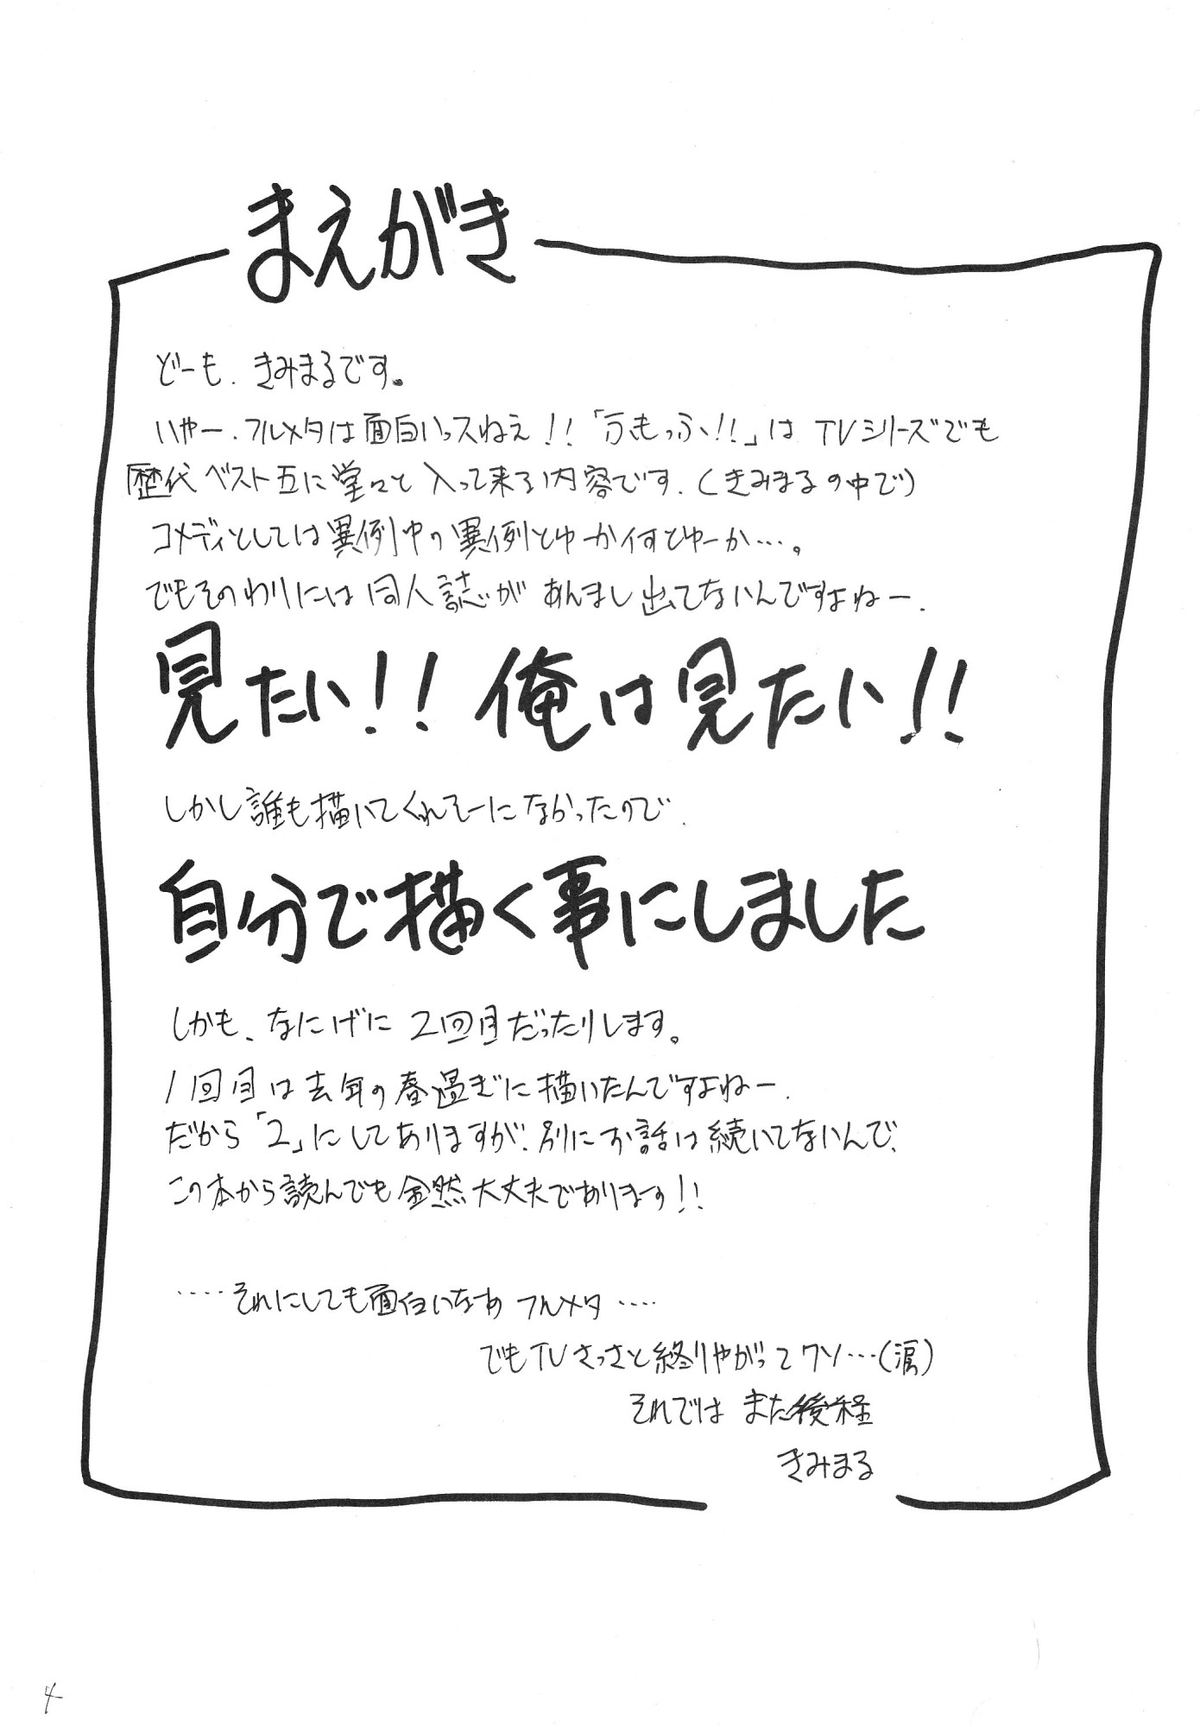 まえがき
どーも、きみまるです。
いやー、フルメタは面白いっスねえ!!「ふもっふ!!」は TVシリーズでも
歴代ベスト五に堂々と入って来る内容です、(きみまるの中で)
コメディとしては異例中の異例とゆーか何とゆーか…。
でもそのわりには同人誌があんまし出てないんですよねー、
見たい!! 俺は見たい!!
しかし誰も描いてくれそーになかったので、
自分で描く事にしました
しかも、なにげに 2回目だったりします。
1回目は去年の春過ぎに描いたんですよねー、
だから「2」にしてありますが、別にお話は続いてないんで、
この本から読んでも全然大丈夫であります!!
‥‥それにしても面白いなあ フルメタ‥‥
でもTVさっさと終りやがってクソ…(涙)
それでは また後程
きみまる
4